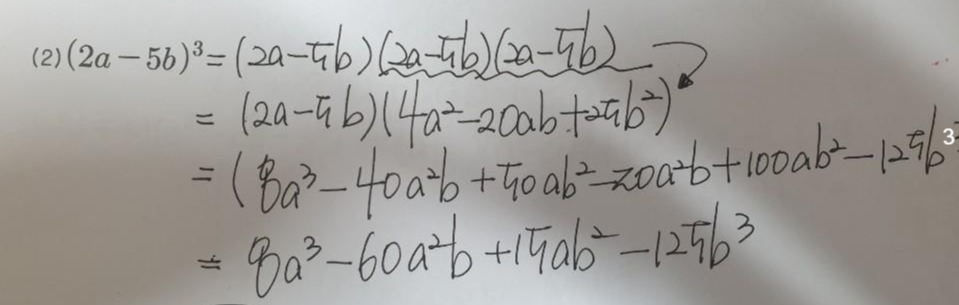 (2) (2a − 5b)³ = (2a−5b)(2a−5b)(2a−5b)
= (2a−5b)(4a²−20ab+25b²)
= (8a³−40a²b+50ab²−20a²b+100ab²−125b³
= 8a³−60a²b+15ab²−125b³